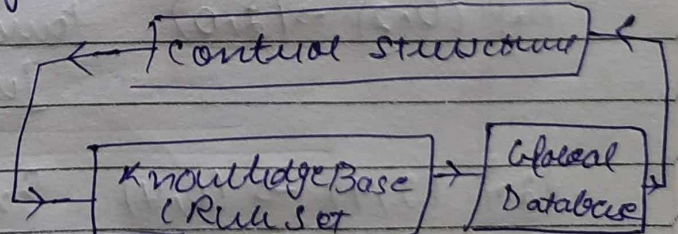 Control Structure
Knowledge Base
(Rule Set
Global
Database